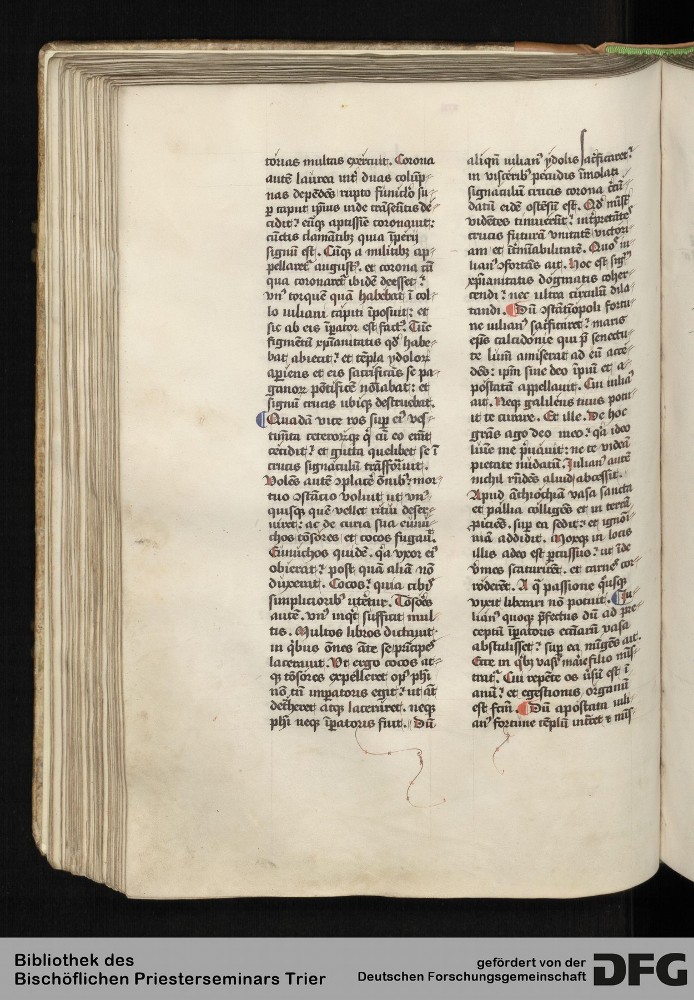 torias multas exercuit. Corona
autē laurea int̄ duas colūp-
nas depēdēs rupto funiclo su-
p̲ caput ip̄ius inde trāseūtis de-
cidit ⁊ eūq; aptissie coronauit:
cūctis clamātib; quia īperij
signū est. Cūq; a militib; ap-
pellaret² august⁹. et corona cū
qua coronaret² ibidē deesset:
vn⁹ torquē quā habebat ī col-
lo iuliani capiti īposuit: et
sic ab eis īpator est fact⁹. Tūc
figmētū xp̄ianitatis qd̓ habe-
bat abiecit: et tēpla ydolor̄
ap̲iens et eis sacrificās se pa-
ganor̄ pōtificē noīabat: et
signū crucis ubiq; destruebat.
Quadā vice ros sup̲ ei⁹ ves-
timēta ceterorūq; q̇ cū eo erāt
cecidit: et gutta quelibet se ī
crucis signaculū trāsformuit.
Volēs autē ꝯplacē oīnib; mor-
tuo ꝯstācio voluit ut vn⁹
quisq; quē vellet ritū deser-
uiret: ac de curia sua eunu-
chos tōsores et cocos fugauit.
Eunuchos quidē. q̇a vxor ei⁹
obierat: post quā aliā nō
duxerat. Cocos: quia cibis
simplicioribus uteret². Tōsōes
autē. vn⁹ inqt̄ sufficit mul-
tis. Multos libros dictauit
in qb̄us oēs āte se prīcipes
lacerauit. Ut ergo cocos at-
q; tōsores expelleret op⁹ phi
nō tn̄ imp̲atoris egit: ut aūt
det̓heret atq; laceraret. neq;
phī neq; īpatoris fuit. Dū
aliqn̄ iulian⁹ ydolis sac̓ficaret²
in viscerib; pecudis īmolati
signaculū crucis corona cīcū-
datū eidē ostēsū est. Qd̓ mīst̓
vidētes timuerūt: int̓pretātes
crucis futurā vnitatē victori-
am et īt̓minabilitatē. Quos iu-
lian⁹ ꝯfortās ait. Hoc est signū
xp̄ianitatis dogmatis coher-
cendi: nec ultra circulū dila-
tandi. Dū ꝯstātīopoli fortu-
ne iulian⁹ sac̓ficaret: maris
ep̄s calcidonie qui p̄ senectu-
te lumē amiserat ad eū acce-
dēs: ip̄m sine deo īpiū et a-
postatā appellauit. Cui iulia⁹
ait. Neq; galileus tuus potu-
it te curare. Et ille. De hoc
grās ago deo meo: qa ideo
lumē me p̄uauit: ne te viderē
pietate nudatū. Julian⁹ autē
nichil rn̄dēs aliud abcessit.
Apud āthiochiā vasa sancta
et pallia colligēs et in terrā
ꝓiciēs. sup̲ ea sedit: et ignōi-
niā addidit. Moxq; in locis
illis adeo est p̲cussus: ut īde
v̓mes scaturirēt. et carnē cor-
roderēt. A q̇ passione q̇usq;
vixit liberari nō potuit. Ju-
lian⁹ quoq; p̄fectus dū ad pre-
ceptū īpatoris ecc̄iarū vasa
abstulisset: sup̲ ea mīgēs ait.
Ecce in qb; vasis marie filio mīs-
trat². Cui repēte os ūsū est ī
anū: et egestionis organū
est fc̄m. Dū apostata iuli-
an⁹ fortune tēplū int̓ret ⁊ mīs-
Bibliothek des
Bischöflichen Priesterseminars Trier
gefördert von der
Deutschen Forschungsgemeinschaft
DFG